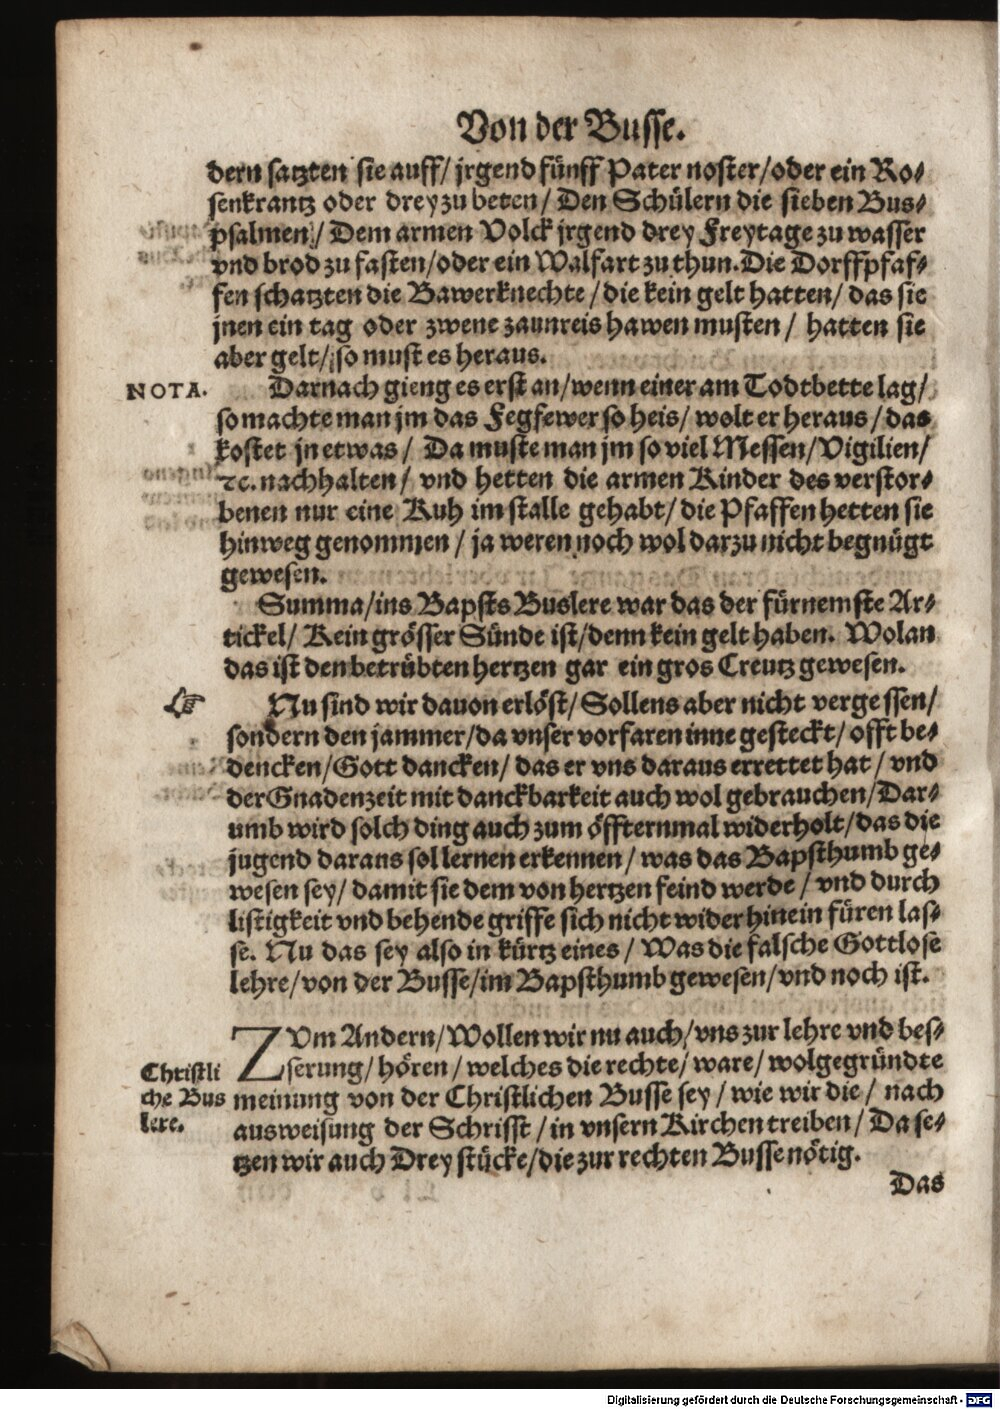 Von der Busse.
dern satzten sie auff/ jrgend fünff Pater noster/oder ein Ro-
senkrantz oder drey zu beten/ Den Schülern die sieben Bus-
psalmen/ Dem armen Volck jrgend drey Freytage zu wasser
vnd brod zu fasten/oder ein Walfart zu thun. Die Dorffpfaf-
fen schatzten die Bawerknechte/ die kein gelt hatten/ das sie
jnen ein tag oder zwene zaunreis hawen musten/ hatten sie
aber gelt/ so must es heraus.
NOTA.
Darnach gieng es erst an/wenn einer am Todtbette lag/
so machte man jm das Fegfewer so heis/ wolt er heraus/ das
kostet jn etwas/ Da muste man jm so viel Messen/Vigilien/
ꝛc. nachhalten/ vnd hetten die armen Kinder des verstor-
benen nur eine Kuh im stalle gehabt/ die Pfaffen hetten sie
hinweg genommen/ ja weren noch wol darzu nicht begnügt
gewesen.
Summa/ins Bapsts Buslere war das der fürnemste Ar-
tickel/ Kein grösser Sünde ist/denn kein gelt haben. Wolan
das ist den betrübten hertzen gar ein gros Creutz gewesen.
☞ Nu sind wir dauon erlöst/ Sollens aber nicht vergessen/
sondern den jammer/da vnser vorfaren inne gesteckt/ offt be-
dencken/Gott dancken/ das er vns daraus errettet hat/ vnd
der Gnadenzeit mit danckbarkeit auch wol gebrauchen/Dar-
umb wird solch ding auch zum öffternmal widerholt/das die
jugend daraus sol lernen erkennen/ was das Bapsthumb ge-
wesen sey/ damit sie dem von hertzen feind werde/ vnd durch
listigkeit vnd behende griffe sich nicht wider hinein füren las-
se. Nu das sey also in kürtz eines/ Was die falsche Gottlose
lehre/von der Busse/im Bapsthumb gewesen/vnd noch ist.
ZVm Andern/Wollen wir nu auch/vns zur lehre vnd bes-
serung/ hören/ welches die rechte/ ware/ wolgegründte
meinung von der Christlichen Busse sey/ wie wir die/ nach
ausweisung der Schrifft/in vnsern Kirchen treiben/ Da se-
tzen wir auch Drey stücke/die zur rechten Busse nötig.
Christli
che Bus
lere.
Das
Digitalisierung gefördert durch die Deutsche Forschungsgemeinschaft - DFG